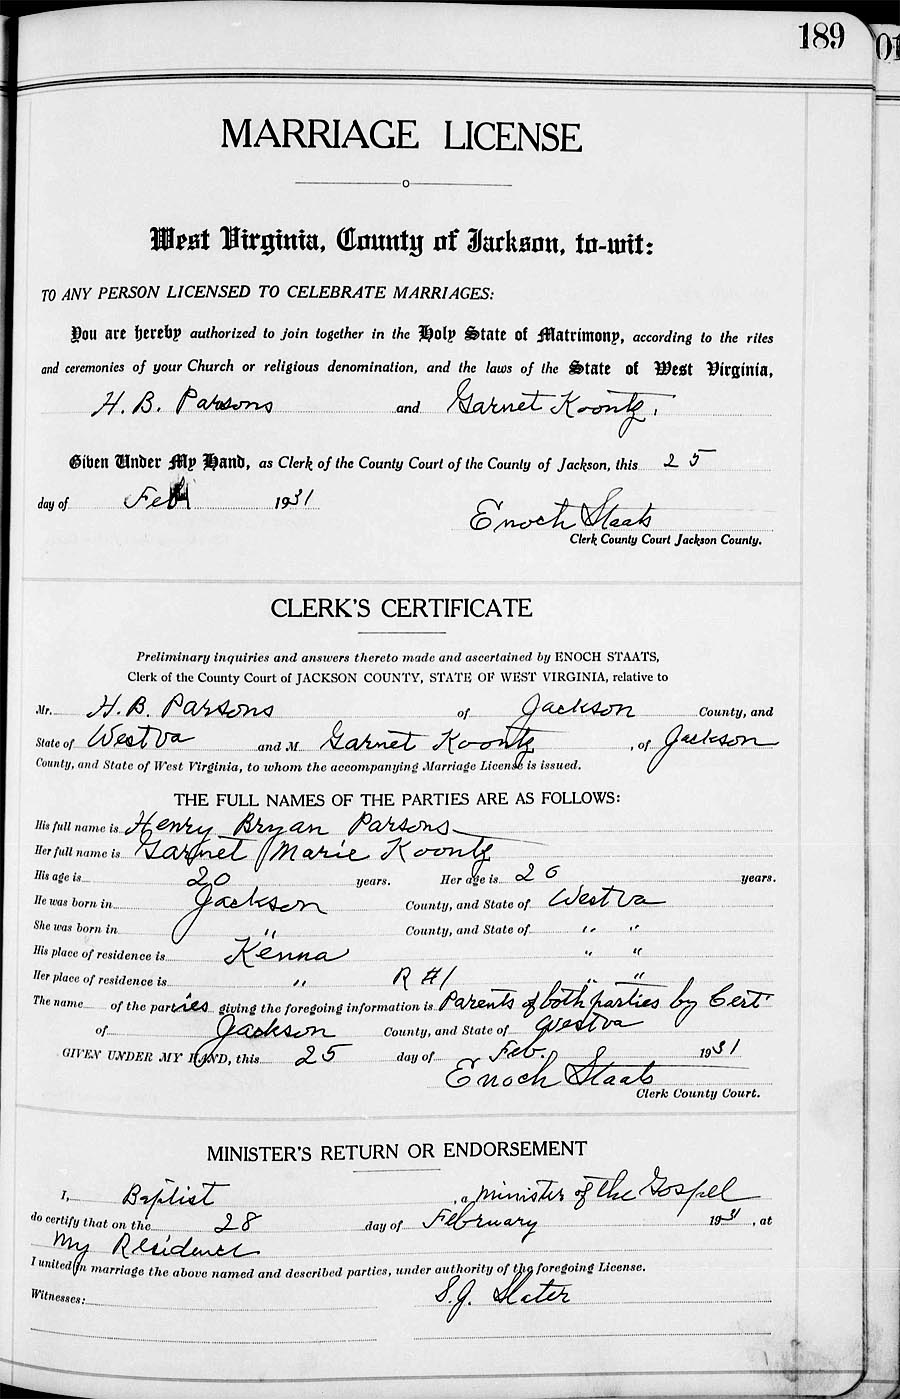 189
01
MARRIAGE LICENSE
West Virginia, County of Jackson, to-wit:
TO ANY PERSON LICENSED TO CELEBRATE MARRIAGES:
You are hereby authorized to join together in the Holy State of Matrimony, according to the rites
and ceremonies of your Church or religious denomination, and the laws of the State of West Virginia,
H. B. Parsons and Garnet Koontz.
Given Under My Hand, as Clerk of the County Court of the County of Jackson, this 25
day of Feb 1931
Enoch Staats
Clerk County Court Jackson County.
CLERK'S CERTIFICATE
Preliminary inquiries and answers thereto made and ascertained by ENOCH STAATS,
Clerk of the County Court of JACKSON COUNTY, STATE OF WEST VIRGINIA, relative to
Mr. H. B. Parsons of Jackson County, and
State of West Va and M Garnet Koontz, of Jackson
County, and State of West Virginia, to whom the accompanying Marriage License is issued.
THE FULL NAMES OF THE PARTIES ARE AS FOLLOWS:
His full name is Henry Bryan Parsons
Her full name is Garnet Marie Koontz
His age is 20 years. Her age is 20 years.
He was born in Jackson County, and State of West Va
She was born in " County, and State of " "
His place of residence is Kenna " "
Her place of residence is " R #1 " "
The name of the parties giving the foregoing information is Parents of both parties by Cert
of Jackson County, and State of West Va
GIVEN UNDER MY HAND, this 25 day of Feb. 1931
Enoch Staats
Clerk County Court.
MINISTER'S RETURN OR ENDORSEMENT
I, Baptist, a Minister of the Gospel
do certify that on the 28 day of February 1931, at
My Residence
I united in marriage the above named and described parties, under authority of the foregoing License.
Witnesses: S. J. Slater